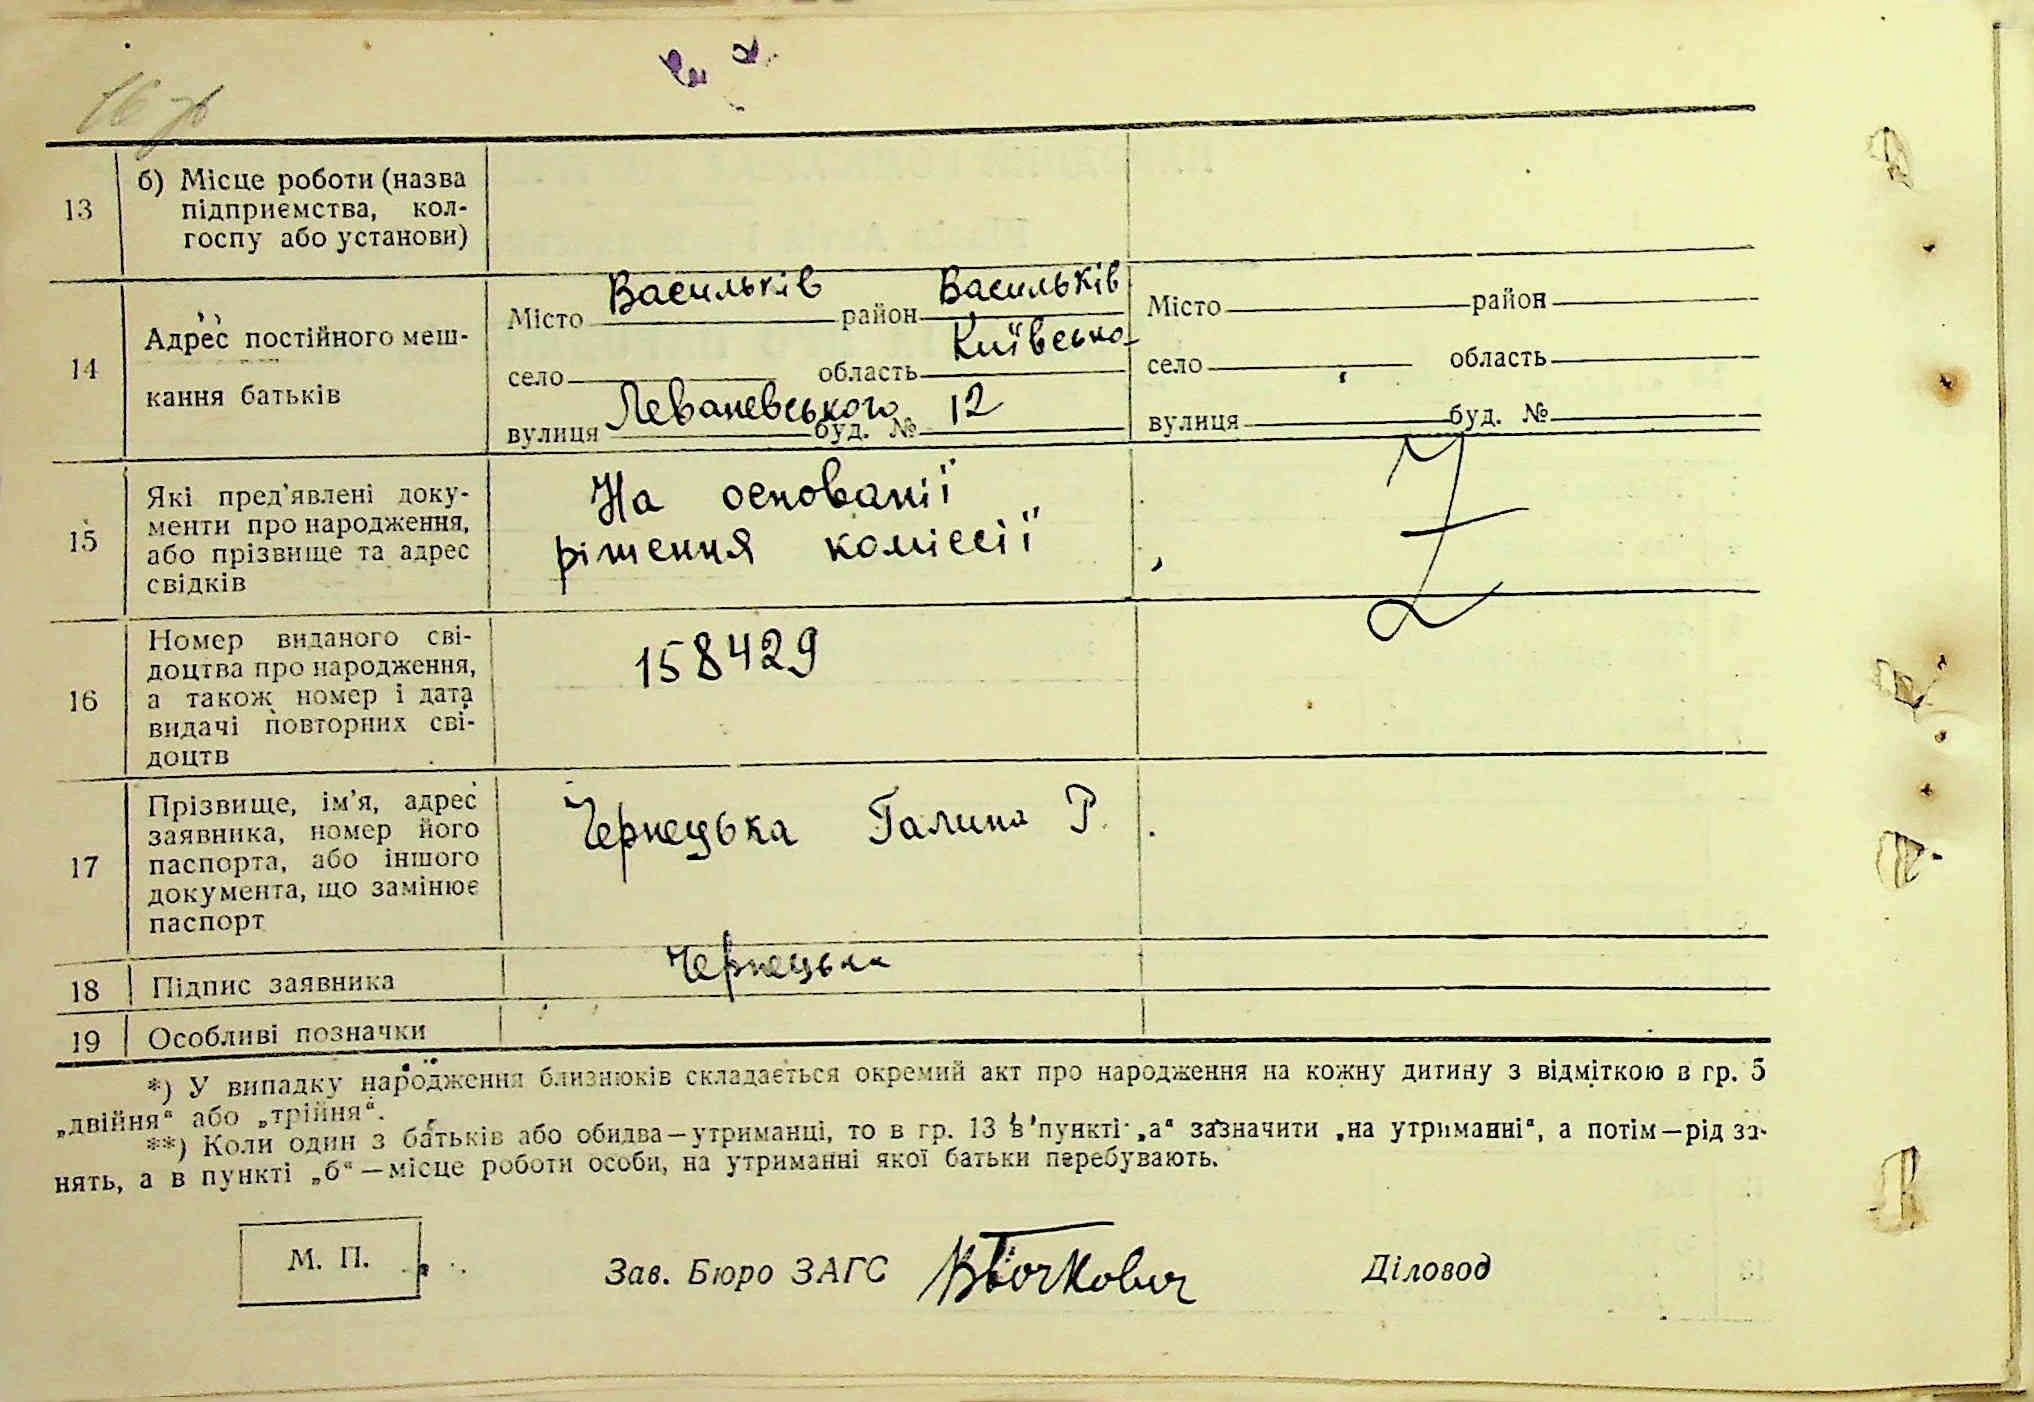 16 зв
13 б) Місце роботи (назва
підприємства, кол-
госпу або установи)
14 Адрес постійного меш-
кання батьків
Місто Васильків район Васильків
село область Київсько-
вулиця Леваневського буд. № 12
Місто район
село область
вулиця буд. №
15 Які пред'явлені доку-
менти про народження,
або прізвище та адрес
свідків
На основанії
рішення коміссії
16 Номер виданого сві-
доцтва про народження,
а також номер і дата
видачі повторних сві-
доцтв
158429
17 Прізвище, ім'я, адрес
заявника, номер його
паспорта, або іншого
документа, що замінює
паспорт
Чернецька Галина Р.
18 Підпис заявника Чернецька
19 Особливі позначки
*) У випадку народження близнюків складається окремий акт про народження на кожну дитину з відміткою в гр. 5
„двійня“ або „трійня“.
**) Коли один з батьків або обидва—утриманці, то в гр. 13 в пункті „а“ зазначити „на утриманні“, а потім—рід за-
нять, а в пункті „б“—місце роботи особи, на утриманні якої батьки перебувають.
М. П. Зав. Бюро ЗАГС Діловод